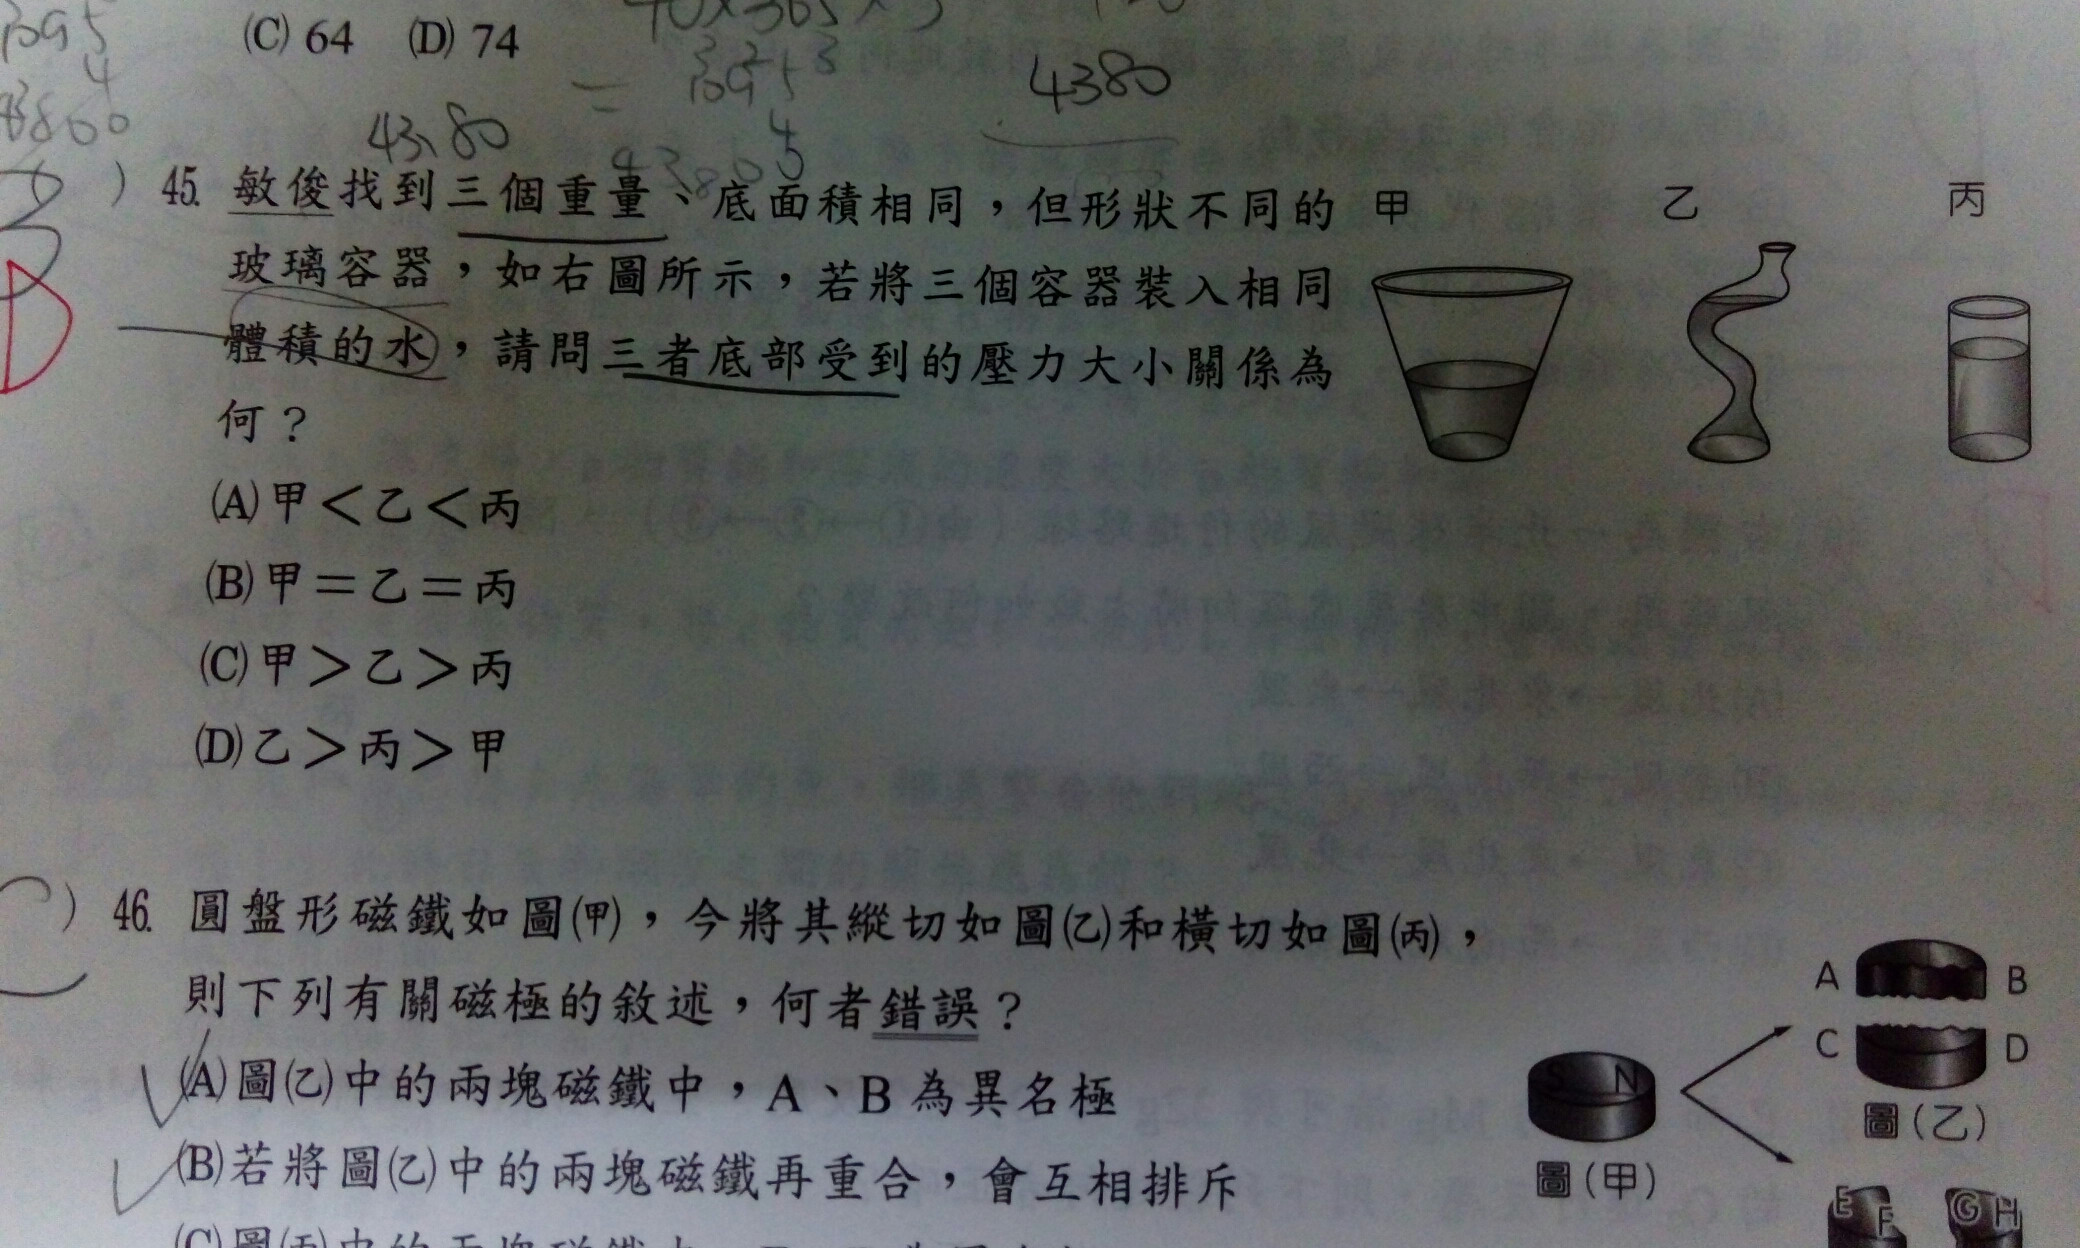 (C) 64 (D) 74
4380
43,80
) 45. 敏俊找到三個重量、底面積相同，但形狀不同的
玻璃容器，如右圖所示，若將三個容器裝入相同
體積的水，請問三者底部受到的壓力大小關係為
何？
甲 乙 丙
(A)甲＜乙＜丙
(B)甲＝乙＝丙
(C)甲＞乙＞丙
(D)乙＞丙＞甲
) 46. 圓盤形磁鐵如圖(甲)，今將其縱切如圖(乙)和橫切如圖(丙)，
則下列有關磁極的敘述，何者錯誤？
(A)圖(乙)中的兩塊磁鐵中，A、B 為異名極
(B)若將圖(乙)中的兩塊磁鐵再重合，會互相排斥
A B
C D
圖(乙)
S N
圖(甲)
E F G H